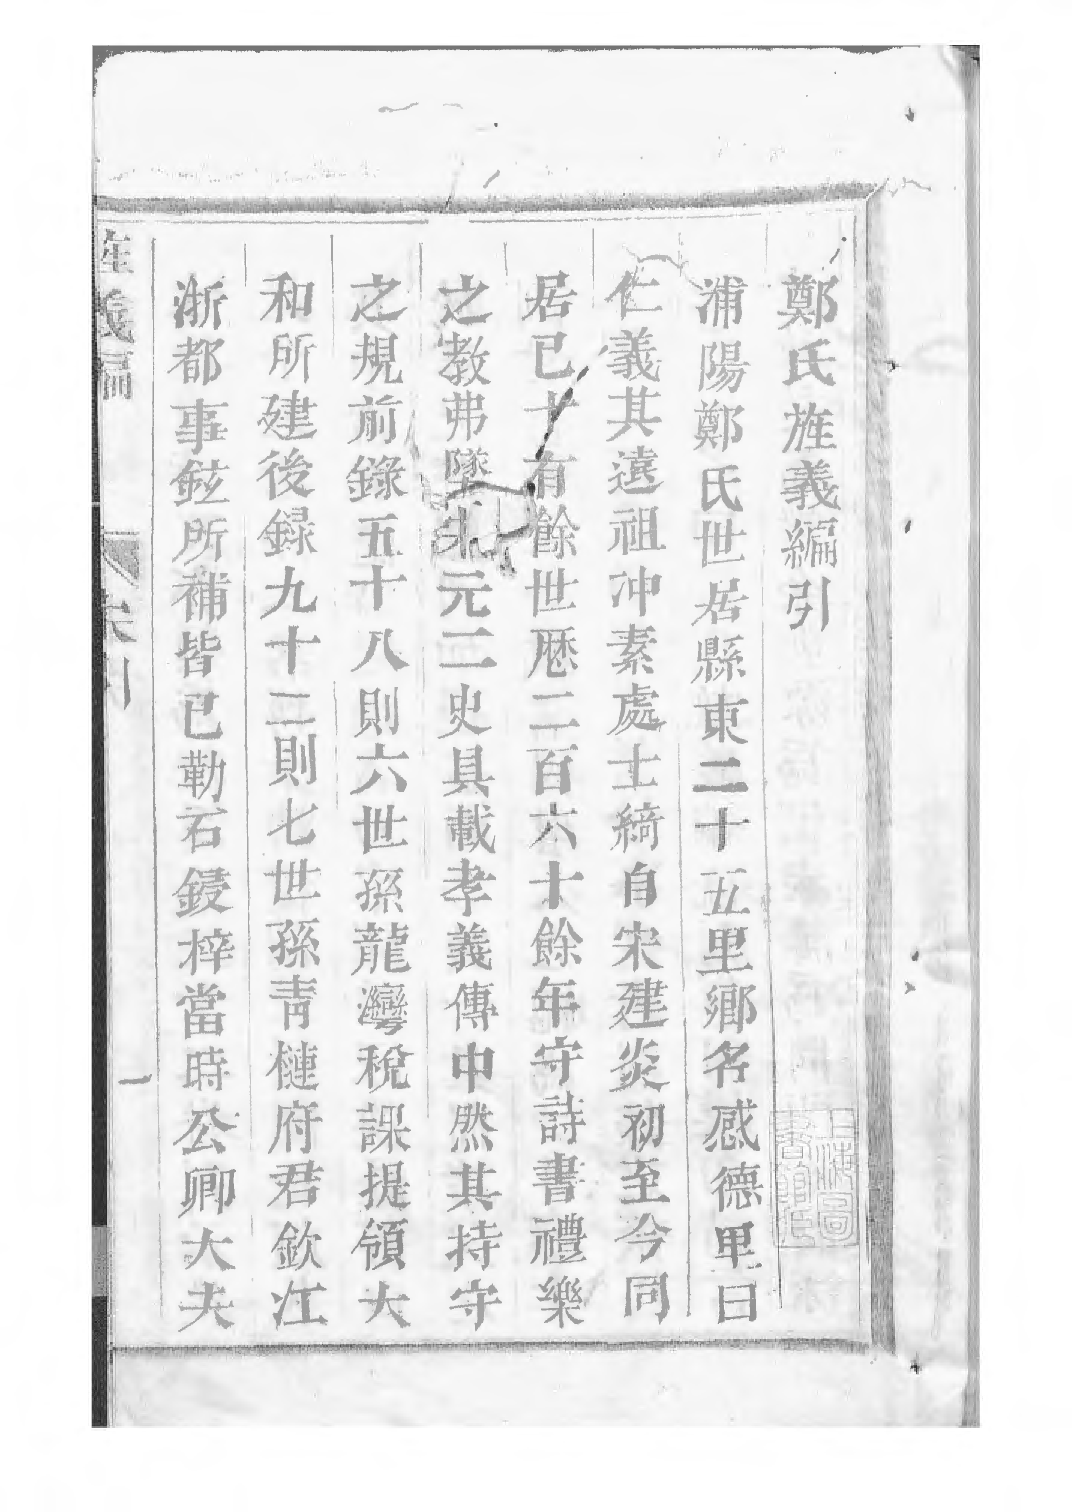 鄭氏旌義編引
浦陽鄭氏世居縣東二十五里鄉名感德里曰
仁義其遠祖冲素處士綺自宋建炎初至今同
居已十有餘世歷二百六十餘年守詩書禮樂
之教弗墜宋元二史具載孝義傳中然其持守
之規前錄五十八則六世孫龍灣稅課提領大
和所建後録九十二則七世孫青槤府君欽江
浙都事鉉所補皆已勒石鋟梓當時公卿大夫
旌義編
引
一
上海圖書館藏